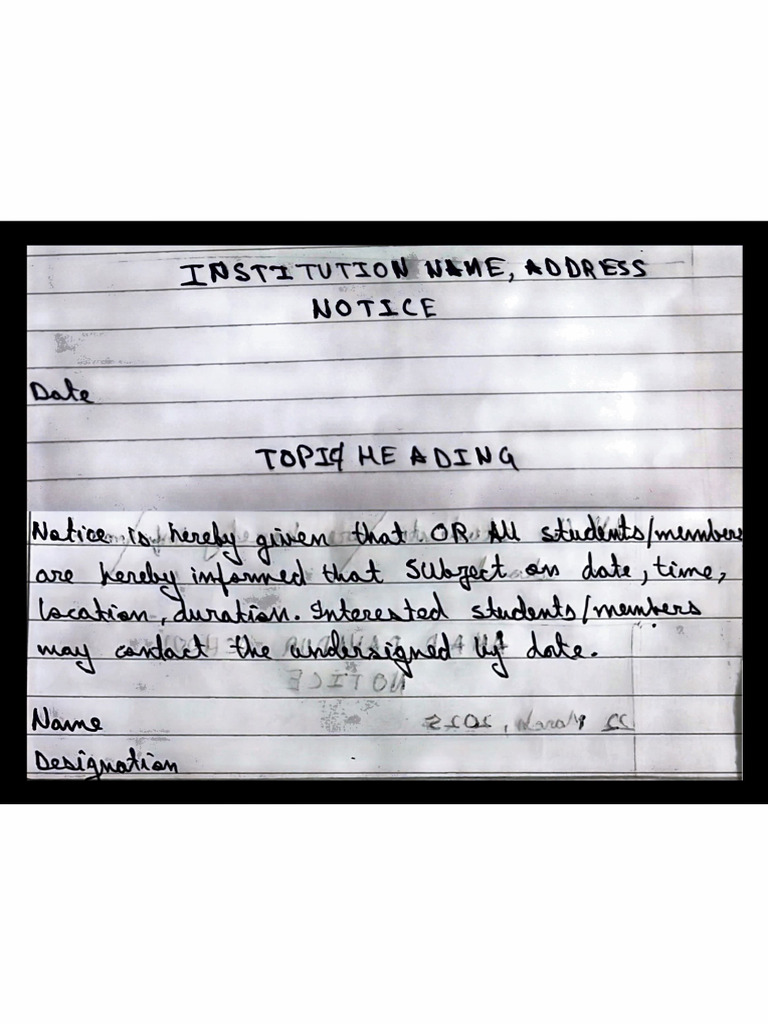 INSTITUTION NAME, ADDRESS
NOTICE
Date
TOPIC HEADING
Notice is hereby given that OR All students/members
are hereby informed that SUbject on date, time,
location, duration. Interested students/members
may contact the undersigned by date.
NOTICE
Name
22 March, 2025
Designation